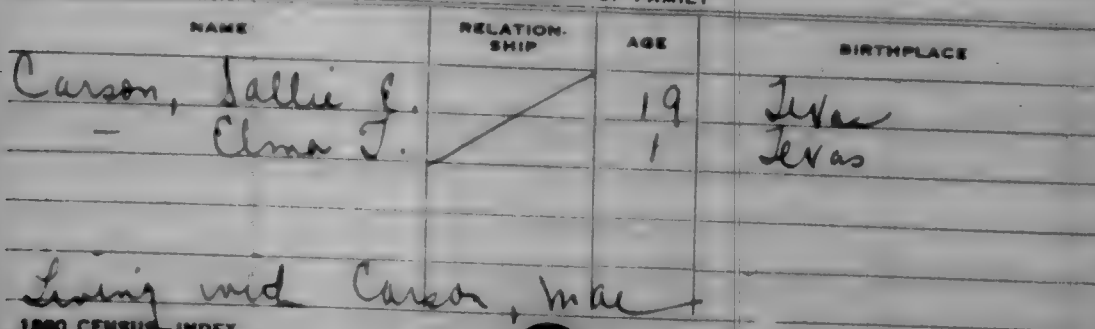 OF FAMILY
NAME RELATION-SHIP AGE BIRTHPLACE
Carson, Sallie E. 19 Texas
– Elma T. 1 Texas
Living wid Carson, Mae
1880 CENSUS INDEX